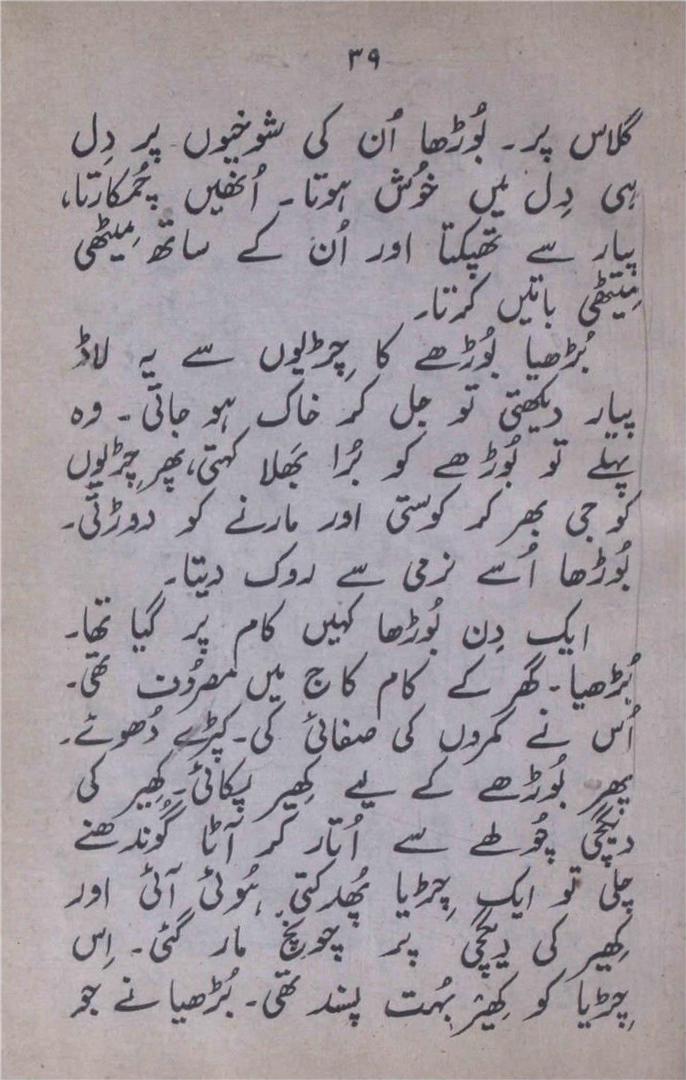 ۳۹
گلاس پر۔ بُوڑھا اُن کی شوخیوں پر دِل
ہی دِل میں خُوش ہوتا۔ اُنھیں چُمکارتا،
پیار سے تھپکتا اور اُن کے ساتھ مِیٹھی
مِیٹھی باتیں کرتا۔
بُڑھیا بُوڑھے کا چِڑیوں سے یہ لاڈ
پیار دیکھتی تو جل کر خاک ہو جاتی۔ وہ
پہلے تو بُوڑھے کو بُرا بَھلا کہتی، پھر چِڑیوں
کو جی بھر کر کوستی اور مارنے کو دوڑتی۔
بُوڑھا اُسے نرمی سے روک دیتا۔
ایک دِن بُوڑھا کہیں کام پر گیا تھا۔
بُڑھیا۔ گھر کے کام کاج میں مصرُوف تھی۔
اُس نے کمروں کی صفائی کی۔ کپڑے دُھوئے۔
پھر بُوڑھے کے لیے کھِیر پکائی۔ کھِیر کی
دیگچی چُولھے سے اُتار کر آٹا گُوندھنے
چلی تو ایک چِڑیا پُھدکتی ہُوئی آئی اور
کھِیر کی دیگچی پر چونچ مار گئی۔ اِس
چِڑیا کو کھِیر بہُت پسند تھی۔ بُڑھیا نے جو